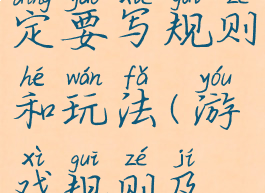 dìng yào xiě guī zé
定要写规则
hé wán fǎ yóu
和玩法(游
xì guī zé jí
戏规则及